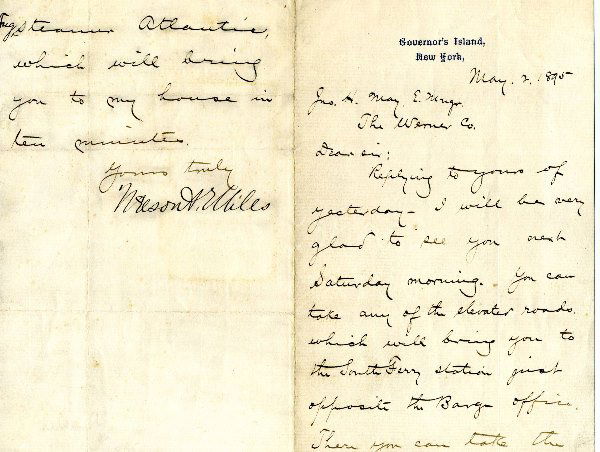 Governor's Island,
New York,
May, 2, 1895
Jno. H. May, E. Mngr.
The Werner Co.
Dear sir;
Replying to yours of
yesterday - I will be very
glad to see you next
Saturday morning. You can
take any of the elevated roads
which will bring you to
the South Ferry station just
opposite the Barge office.
There you can take the
Steamer Atlantic,
which will bring
you to my house in
ten minutes.
Yours truly
Nelson A. Miles